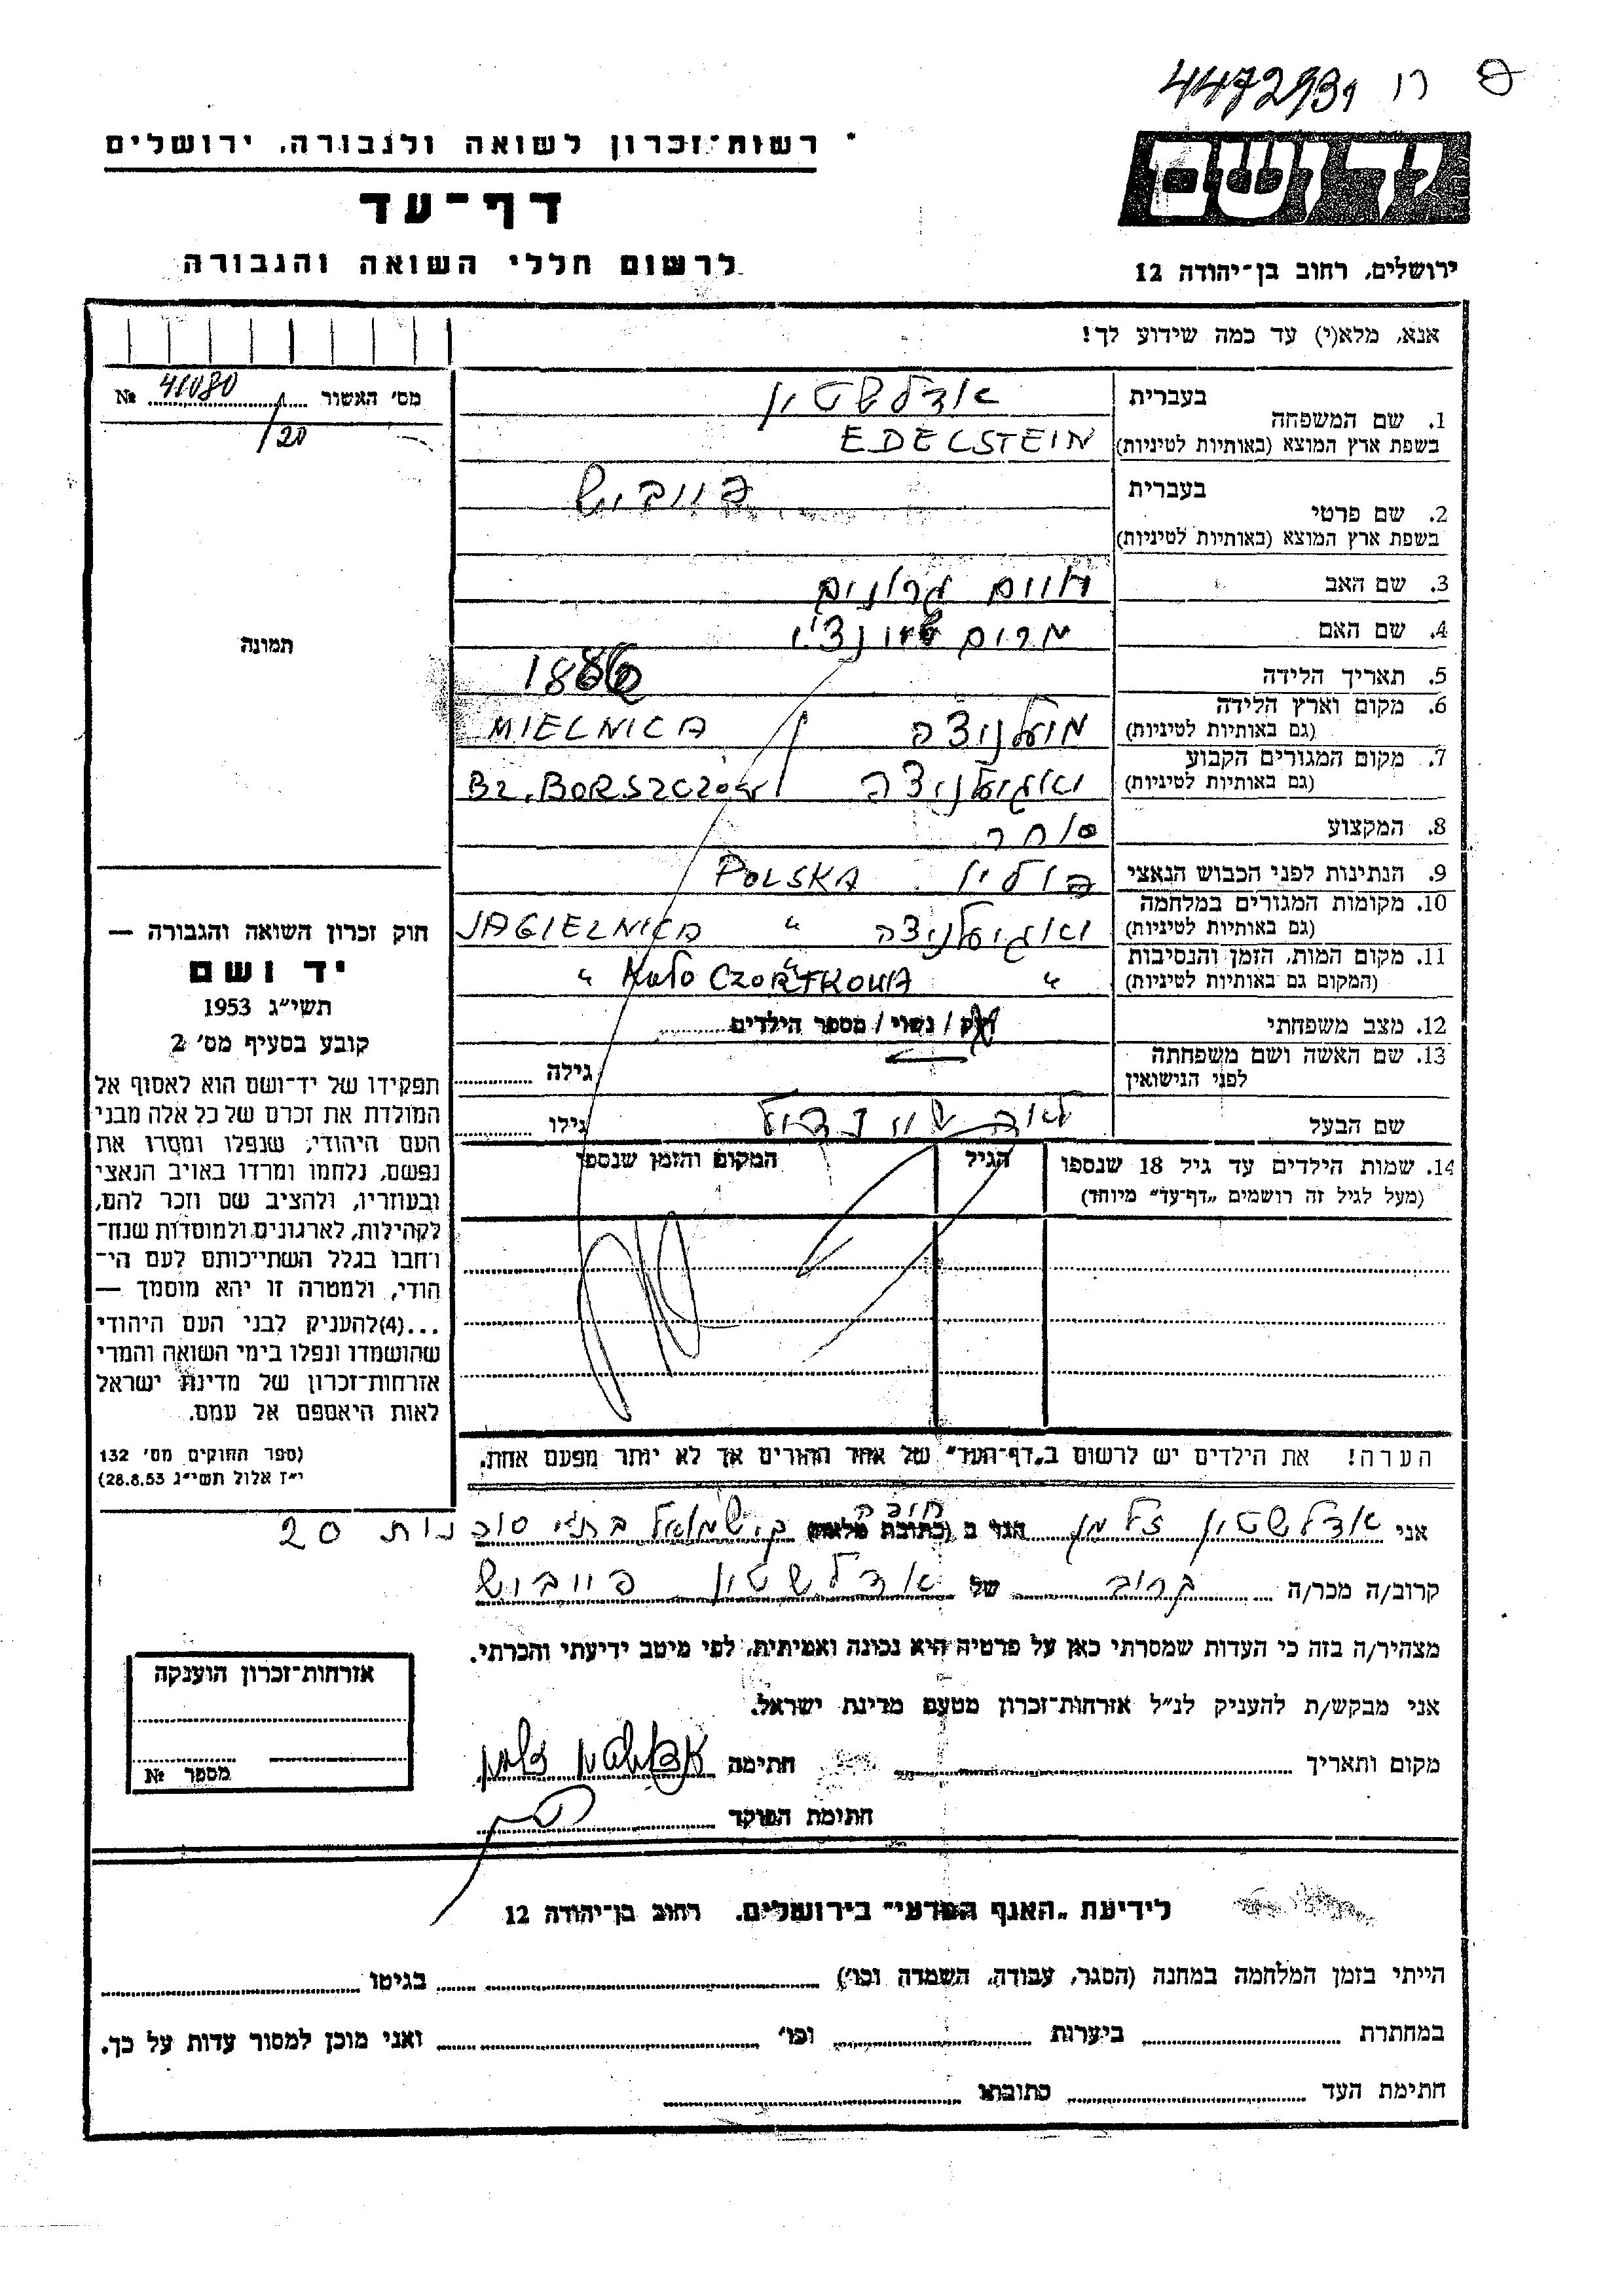 4472931
רשות־זכרון לשואה ולגבורה, ירושלים
יד ושם
דף־עד
לרשום חללי השואה והגבורה
ירושלים, רחוב בן־יהודה 12
אנא, מלא(י) עד כמה שידוע לך!
מס׳ האשור 41080 №
/20
תמונה
בעברית אדלשטין
1. שם המשפחה
בשפת ארץ המוצא (באותיות לטיניות) EDELSTEIN
בעברית פייביש
2. שם פרטי
בשפת ארץ המוצא (באותיות לטיניות)
3. שם האב חיים
4. שם האם מרים
5. תאריך הלידה 1886
6. מקום וארץ הלידה
(גם באותיות לטיניות) מיעלניצה MIELNICA
7. מקום המגורים הקבוע
(גם באותיות לטיניות) יאגיעלניצה Bz. BORSZCZÓW
8. המקצוע סוחר
9. הנתינות לפני הכבוש הנאצי פולין POLSKA
10. מקומות המגורים במלחמה
(גם באותיות לטיניות) יאגיעלניצה " JAGIELNICA
11. מקום המות, הזמן והנסיבות
(המקום גם באותיות לטיניות) " " KOŁO CZORTKOWA "
12. מצב משפחתי רוק / נשוי / מספר הילדים
13. שם האשה ושם משפחתה
לפני הנישואין גילה
שם הבעל גילו
14. שמות הילדים עד גיל 18 שנספו
(מעל לגיל זה רושמים „דף־עד״ מיוחד)
הגיל
המקום והזמן שנספו
חוק זכרון השואה והגבורה —
יד ושם
תשי״ג 1953
קובע בסעיף מס׳ 2
תפקידו של יד־ושם הוא לאסוף אל
המולדת את זכרם של כל אלה מבני
העם היהודי, שנפלו ומסרו את
נפשם, נלחמו ומרדו באויב הנאצי
ובעוזריו, ולהציב שם וזכר להם,
לקהילות, לארגונים ולמוסדות שנח־
רחבו בגלל השתייכותם לעם הי־
הודי, ולמטרה זו יהא מוסמך —
...(4)להעניק לבני העם היהודי
שהושמדו ונפלו בימי השואה והמרי
אזרחות־זכרון של מדינת ישראל
לאות היאספם אל עמם.
(ספר החוקים מס׳ 132
י״ז אלול תשי״ג 28.8.53)
הערה! את הילדים יש לרשום ב„דף־העד״ של אחד ההורים אך לא יותר מפעם אחת.
אני אדלשטין זלמן הגר ב (כתובת מלאה) ק. שמואל 20
קרוב/ה מכר/ה קרוב של אדלשטין פייביש
מצהיר/ה בזה כי העדות שמסרתי כאן על פרטיה היא נכונה ואמיתית, לפי מיטב ידיעתי והכרתי.
אני מבקש/ת להעניק לנ״ל אזרחות־זכרון מטעם מדינת ישראל.
מקום ותאריך חתימה אדלשטין זלמן
חתימת הפוקד
אזרחות־זכרון הוענקה
מספר №
לידיעת „האגף המדעי״ בירושלים. רחוב בן־יהודה 12
הייתי בזמן המלחמה במחנה (הסגר, עבודה, השמדה וכו׳) בגיטו
במחתרת ביערות וכו׳ ואני מוכן למסור עדות על כך.
חתימת העד כתובתו